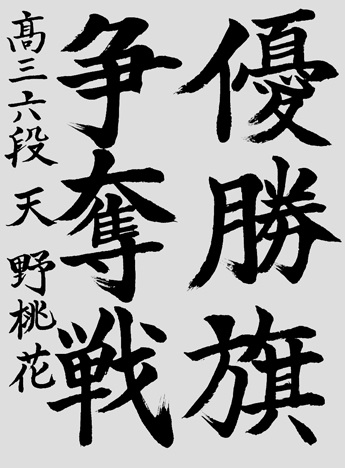 優勝旗
争奪戦
髙三六段 天野桃花